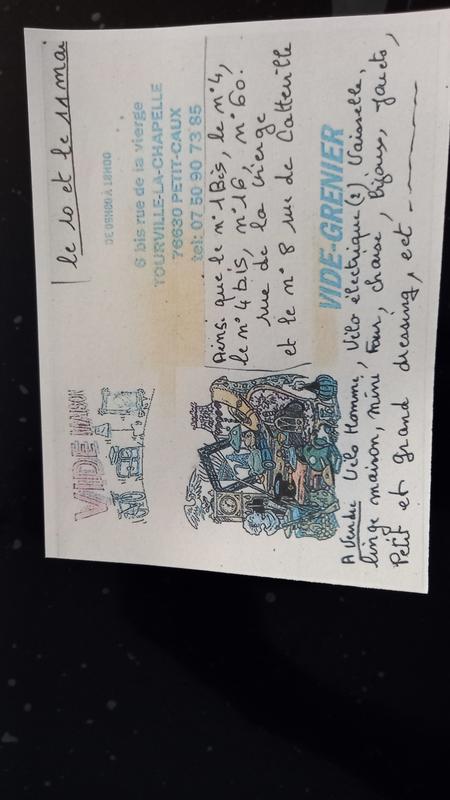 VIDE MAISON
le 10 et le 11 mai
DE 09H00 A 18H00
6 bis rue de la vierge
TOURVILLE-LA-CHAPELLE
76630 PETIT-CAUX
tel: 07 50 90 73 85
Ainsi que le n° 1Bis, le n°4,
le n° 4 bis, n°16, n° 60.
rue de la vierge
et le n° 8 rue de Catteville
VIDE-GRENIER
A Vendre Vélo Homme, Vélo électrique (2) Vaisselle,
linge maison, mini Four, chaise, Bijoux, jouets,
Petit et grand dressing, ect - -